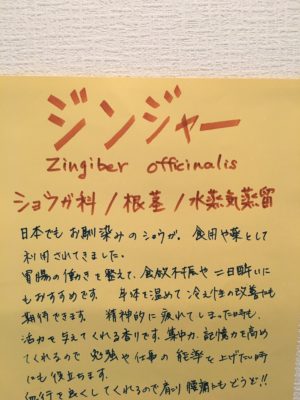 ジンジャー
Zingiber officinalis
ショウガ科/根茎/水蒸気蒸留
日本でもお馴染みのショウガ。食用や薬として
利用されてきました。
胃腸の働きを整えて、食欲不振や二日酔いに
もおすすめです。 身体を温めて冷え性の改善も
期待できます。 精神的に疲れてしまった時も、
活力を与えてくれる香りです。集中力、記憶力を高め
てくれるので 勉強や仕事の能率を上げたい時
にも役立ちます。
血行を良くしてくれるので肩こり腰痛にもどうぞ!!